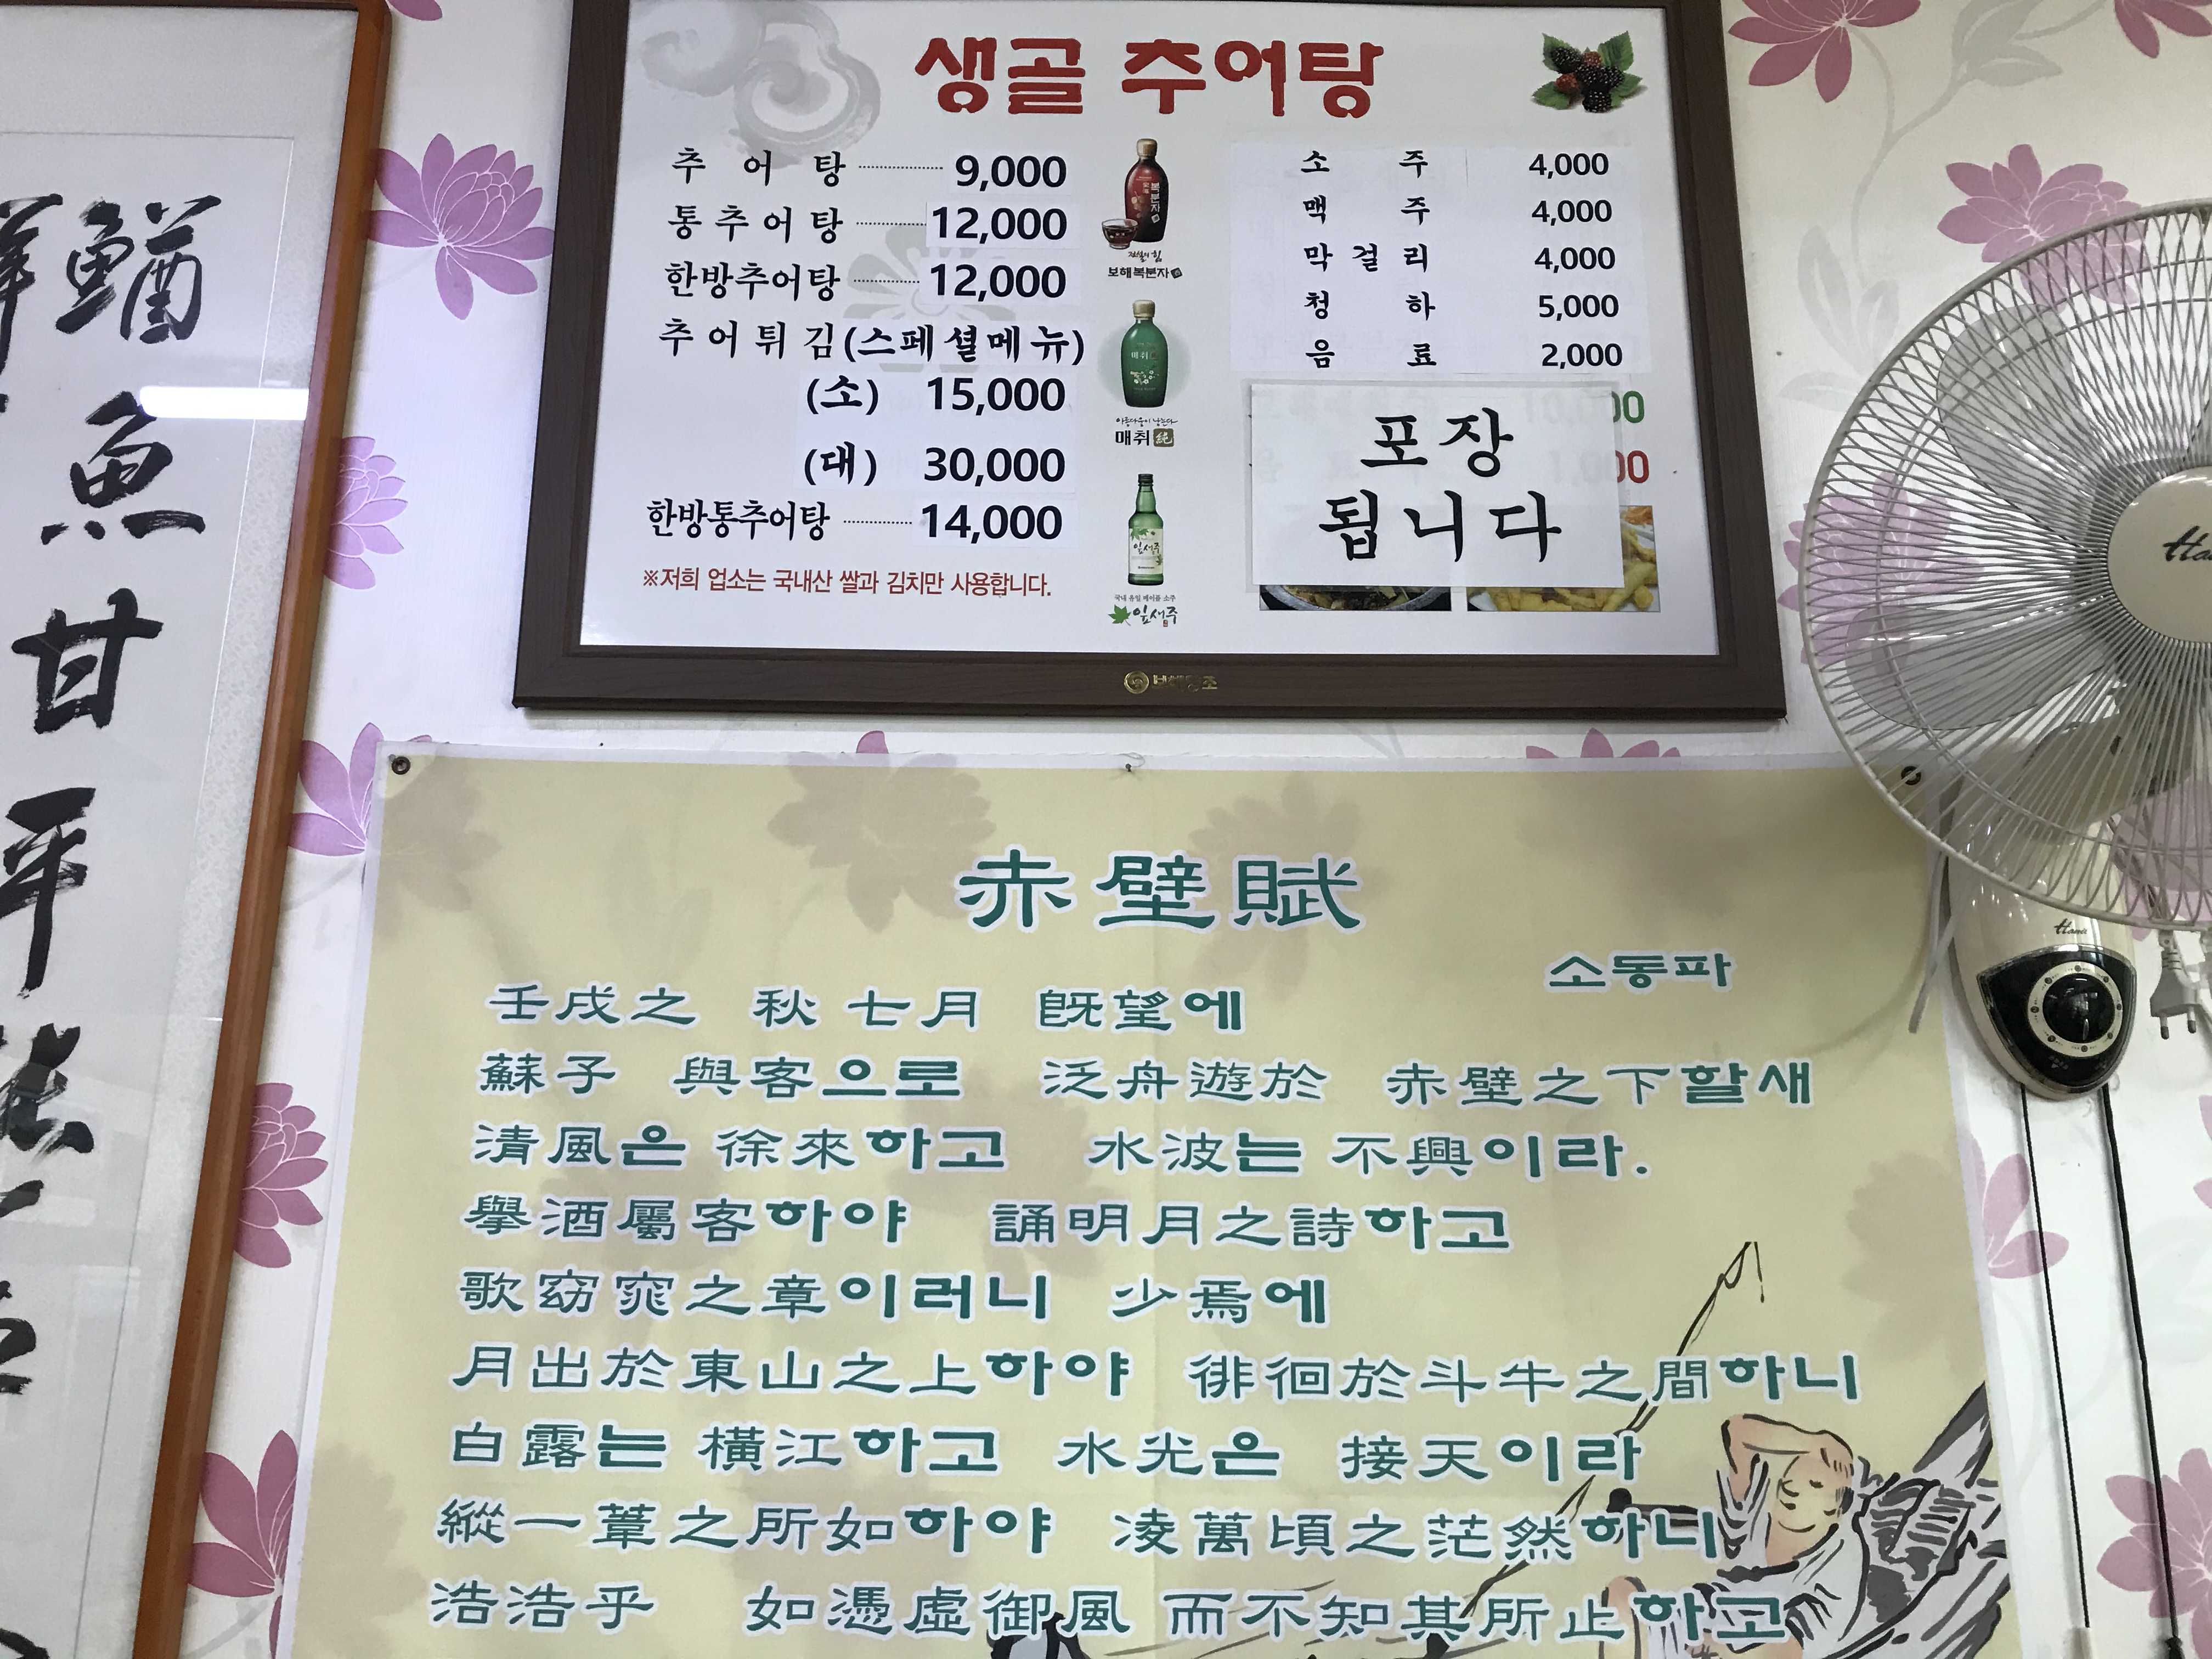 생골 추어탕
추 어 탕 9,000
통 추 어 탕 12,000
한방추어탕 12,000
추 어 튀 김 (스페셜메뉴)
(소) 15,000
(대) 30,000
한방통추어탕 14,000
※저희 업소는 국내산 쌀과 김치만 사용합니다.
복분자
보해 복분자
매취
매취 純
잎새주
잎새주
소 주 4,000
맥 주 4,000
막 걸 리 4,000
청 하 5,000
음 료 2,000
포장
됩니다
鰌
魚
甘
平
赤壁賦
소동파
壬戌之 秋 七月 旣望에
蘇子 與客으로 泛舟遊於 赤壁之下할새
淸風은 徐來하고 水波는 不興이라.
擧酒屬客하야 誦明月之詩하고
歌窈窕之章이러니 少焉에
月出於東山之上하야 徘徊於斗牛之間하니
白露는 橫江하고 水光은 接天이라
縱一葦之所如하야 凌萬頃之茫然하니
浩浩乎 如憑虛御風 而不知其所止하고